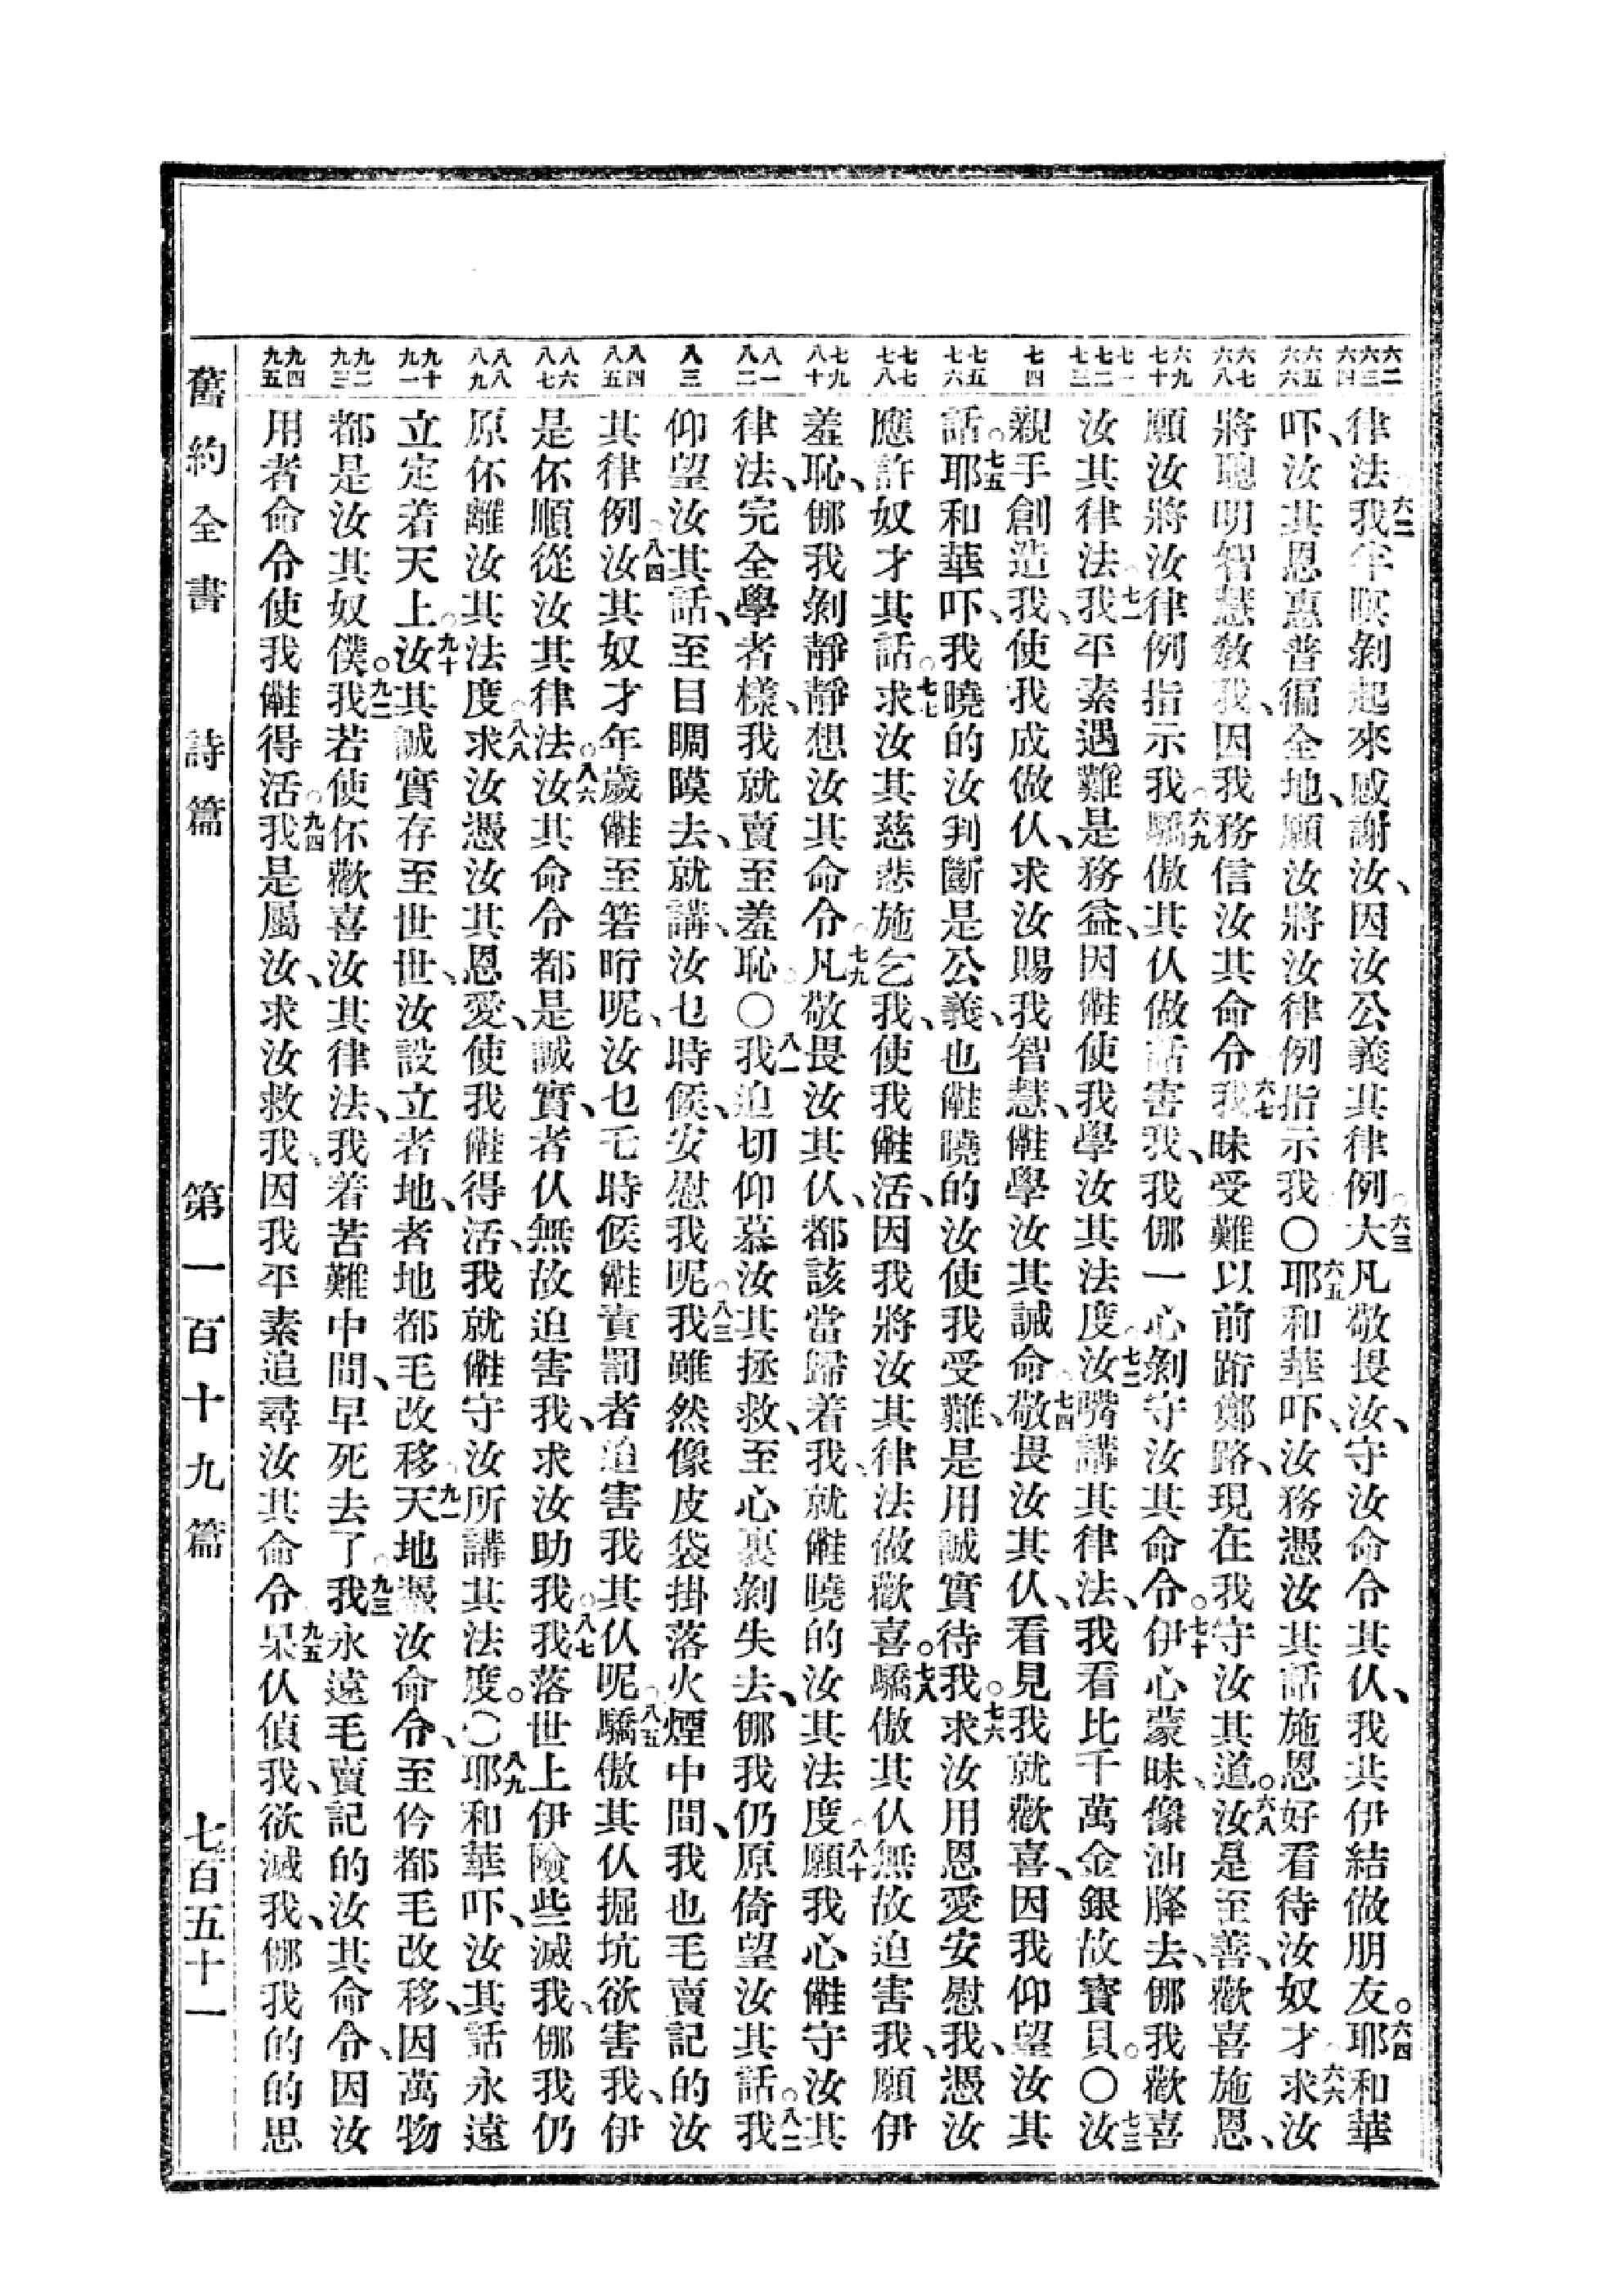 六二 六三 六四 六五 六六 六七 六八 六九 七十 七一 七二 七三 七四 七五 七六 七七 七八 七九 八十 八一 八二 八三 八四 八五 八六 八七 八八 八九 九十 九一 九二 九三 九四 九五
律法。六二我午暝剝起來感謝汝、因汝公義其律例。六三大凡敬畏汝、守汝命令其伙、我共伊結做朋友。六四耶和華
吓、汝其恩惠普徧全地、願汝將汝律例指示我〇六五耶和華吓、汝務憑汝其話施恩好看待汝奴才。六六求汝
將聰明智慧敎我、因我務信汝其命令。六七我昧受難以前跨鄭路、現在我守汝其道。六八汝是至善、歡喜施恩、
願汝將汝律例指示我。六九驕傲其伙做話害我、我倻一心剝守汝其命令。七十伊心蒙昧、像油膵去、倻我歡喜
汝其律法。七一我平素遇難是務益、因㒀使我學汝其法度。七二汝嘴講其律法、我看比千萬金銀故寶貝。〇七三汝
親手創造我、使我成做伙、求汝賜我智慧、㒀學汝其誡命。七四敬畏汝其伙、看見我就歡喜、因我仰望汝其
話。七五耶和華吓、我曉的汝判斷是公義、也㒀曉的汝使我受難、是用誠實待我。七六求汝用恩愛安慰我、憑汝
應許奴才其話。七七求汝其慈悲施乞我、使我㒀活、因我將汝其律法做歡喜。七八驕傲其伙無故迫害我、願伊
羞恥、倻我剝靜靜想汝其命令。七九凡敬畏汝其伙、都該當歸着我、就㒀曉的汝其法度。八十願我心㒀守汝其
律法、完全學者樣、我就賣至羞恥。〇八一我迫切仰慕汝其拯救、至心裏剝失去、倻我仍原倚望汝其話。八二我
仰望汝其話、至目睭瞙去、就講、汝乜時候、安慰我呢。八三我雖然像皮袋掛落火煙中間、我也毛賣記的汝
其律例。八四汝其奴才年歲㒀至箬𣍐呢、汝乜乇時候㒀責罰者迫害我其伙呢。八五驕傲其伙掘坑欲害我、伊
是伓順從汝其律法。八六汝其命令都是誠實、者伙無故迫害我、求汝助我。八七我落世上伊險些滅我、倻我仍
原伓離汝其法度。八八求汝憑汝其恩愛、使我㒀得活、我就㒀守汝所講其法度。〇八九耶和華吓、汝其話永遠
立定着天上。九十汝其誠實存至世世、汝設立者地、者地都毛改移。九一天地憑汝命令、至仱都毛改移、因萬物
都是汝其奴僕。九二我若使伓歡喜汝其律法、我着苦難中間、早死去了。九三我永遠毛賣記的汝其命令、因汝
用者命令使我㒀得活。九四我是屬汝、求汝救我、因我平素追尋汝其命令。九五呆伙偵我、欲滅我、倻我的的思
舊約全書 詩篇 第一百十九篇 七百五十一